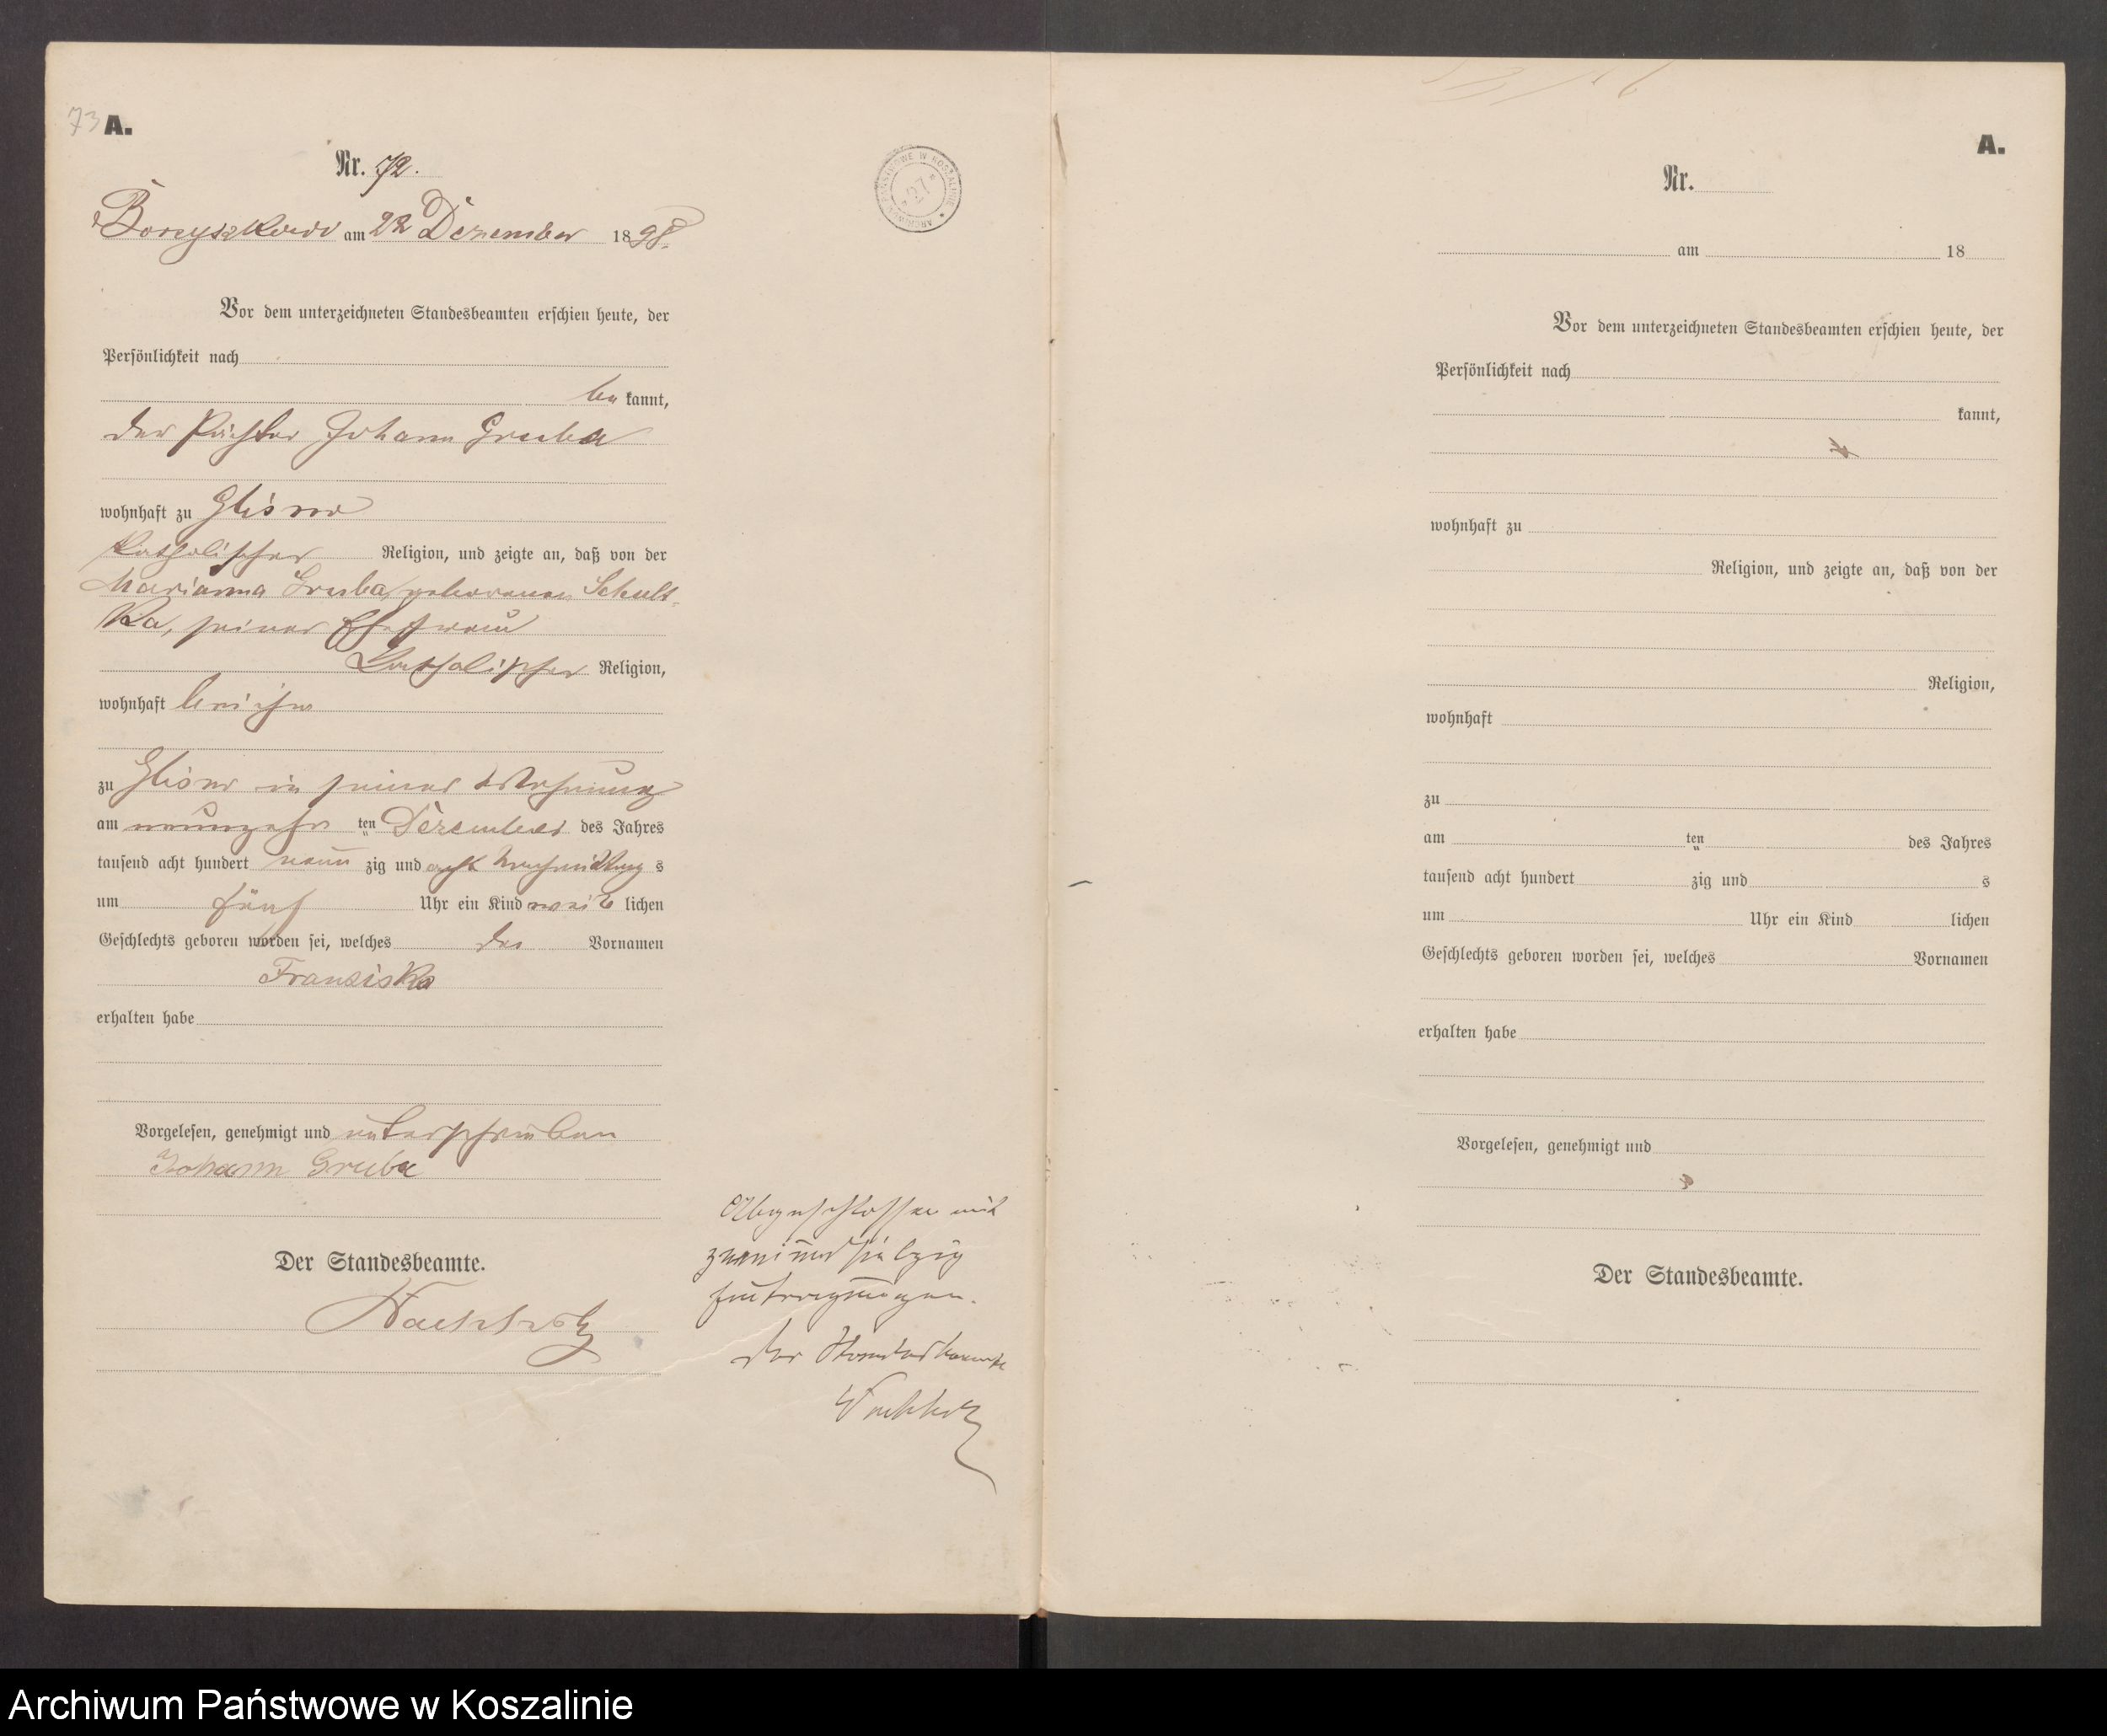 73 A.
Nr. 72.
Borzyszkowi am 22 Dezember 1898.
Vor dem unterzeichneten Standesbeamten erschien heute, der
Persönlichkeit nach
be kannt,
der Pächter Johann Gruba
wohnhaft zu Glisno
katholischer Religion, und zeigte an, daß von der
Marianna Gruba geborenen Schult-
ka, seiner Ehefrau
katholischer Religion,
wohnhaft bei ihm
zu Glisno in seiner Wohnung
am neunzehn ten Dezember des Jahres
tausend acht hundert neun zig und acht Nachmittag s
um fünf Uhr ein Kind weib lichen
Geschlechts geboren worden sei, welches den Vornamen
Franziska
erhalten habe
Vorgelesen, genehmigt und unterschrieben
Johann Gruba
Der Standesbeamte.
Abgeschlossen mit
zweiundsiebzig
Eintragungen.
Der Standesbeamte
ARCHIWUM PAŃSTWOWE W KOSZALINIE * 27 *
A.
Nr.
am 18
Vor dem unterzeichneten Standesbeamten erschien heute, der
Persönlichkeit nach
kannt,
wohnhaft zu
Religion, und zeigte an, daß von der
Religion,
wohnhaft
zu
am ten des Jahres
tausend acht hundert zig und s
um Uhr ein Kind lichen
Geschlechts geboren worden sei, welches Vornamen
erhalten habe
Vorgelesen, genehmigt und
Der Standesbeamte.
Archiwum Państwowe w Koszalinie